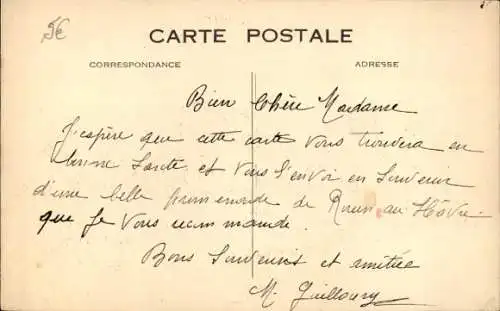 5€
CARTE POSTALE
CORRESPONDANCE
ADRESSE
Bien Chère Madame
J'espère que cette carte vous trouvera en
bonne Sante et vous l'envoi en Souvenir
d'une belle promenade de Rouen au Hâvre
que Je Vous recommande.
Bons Souvenirs et amitiée
M. Guilloury